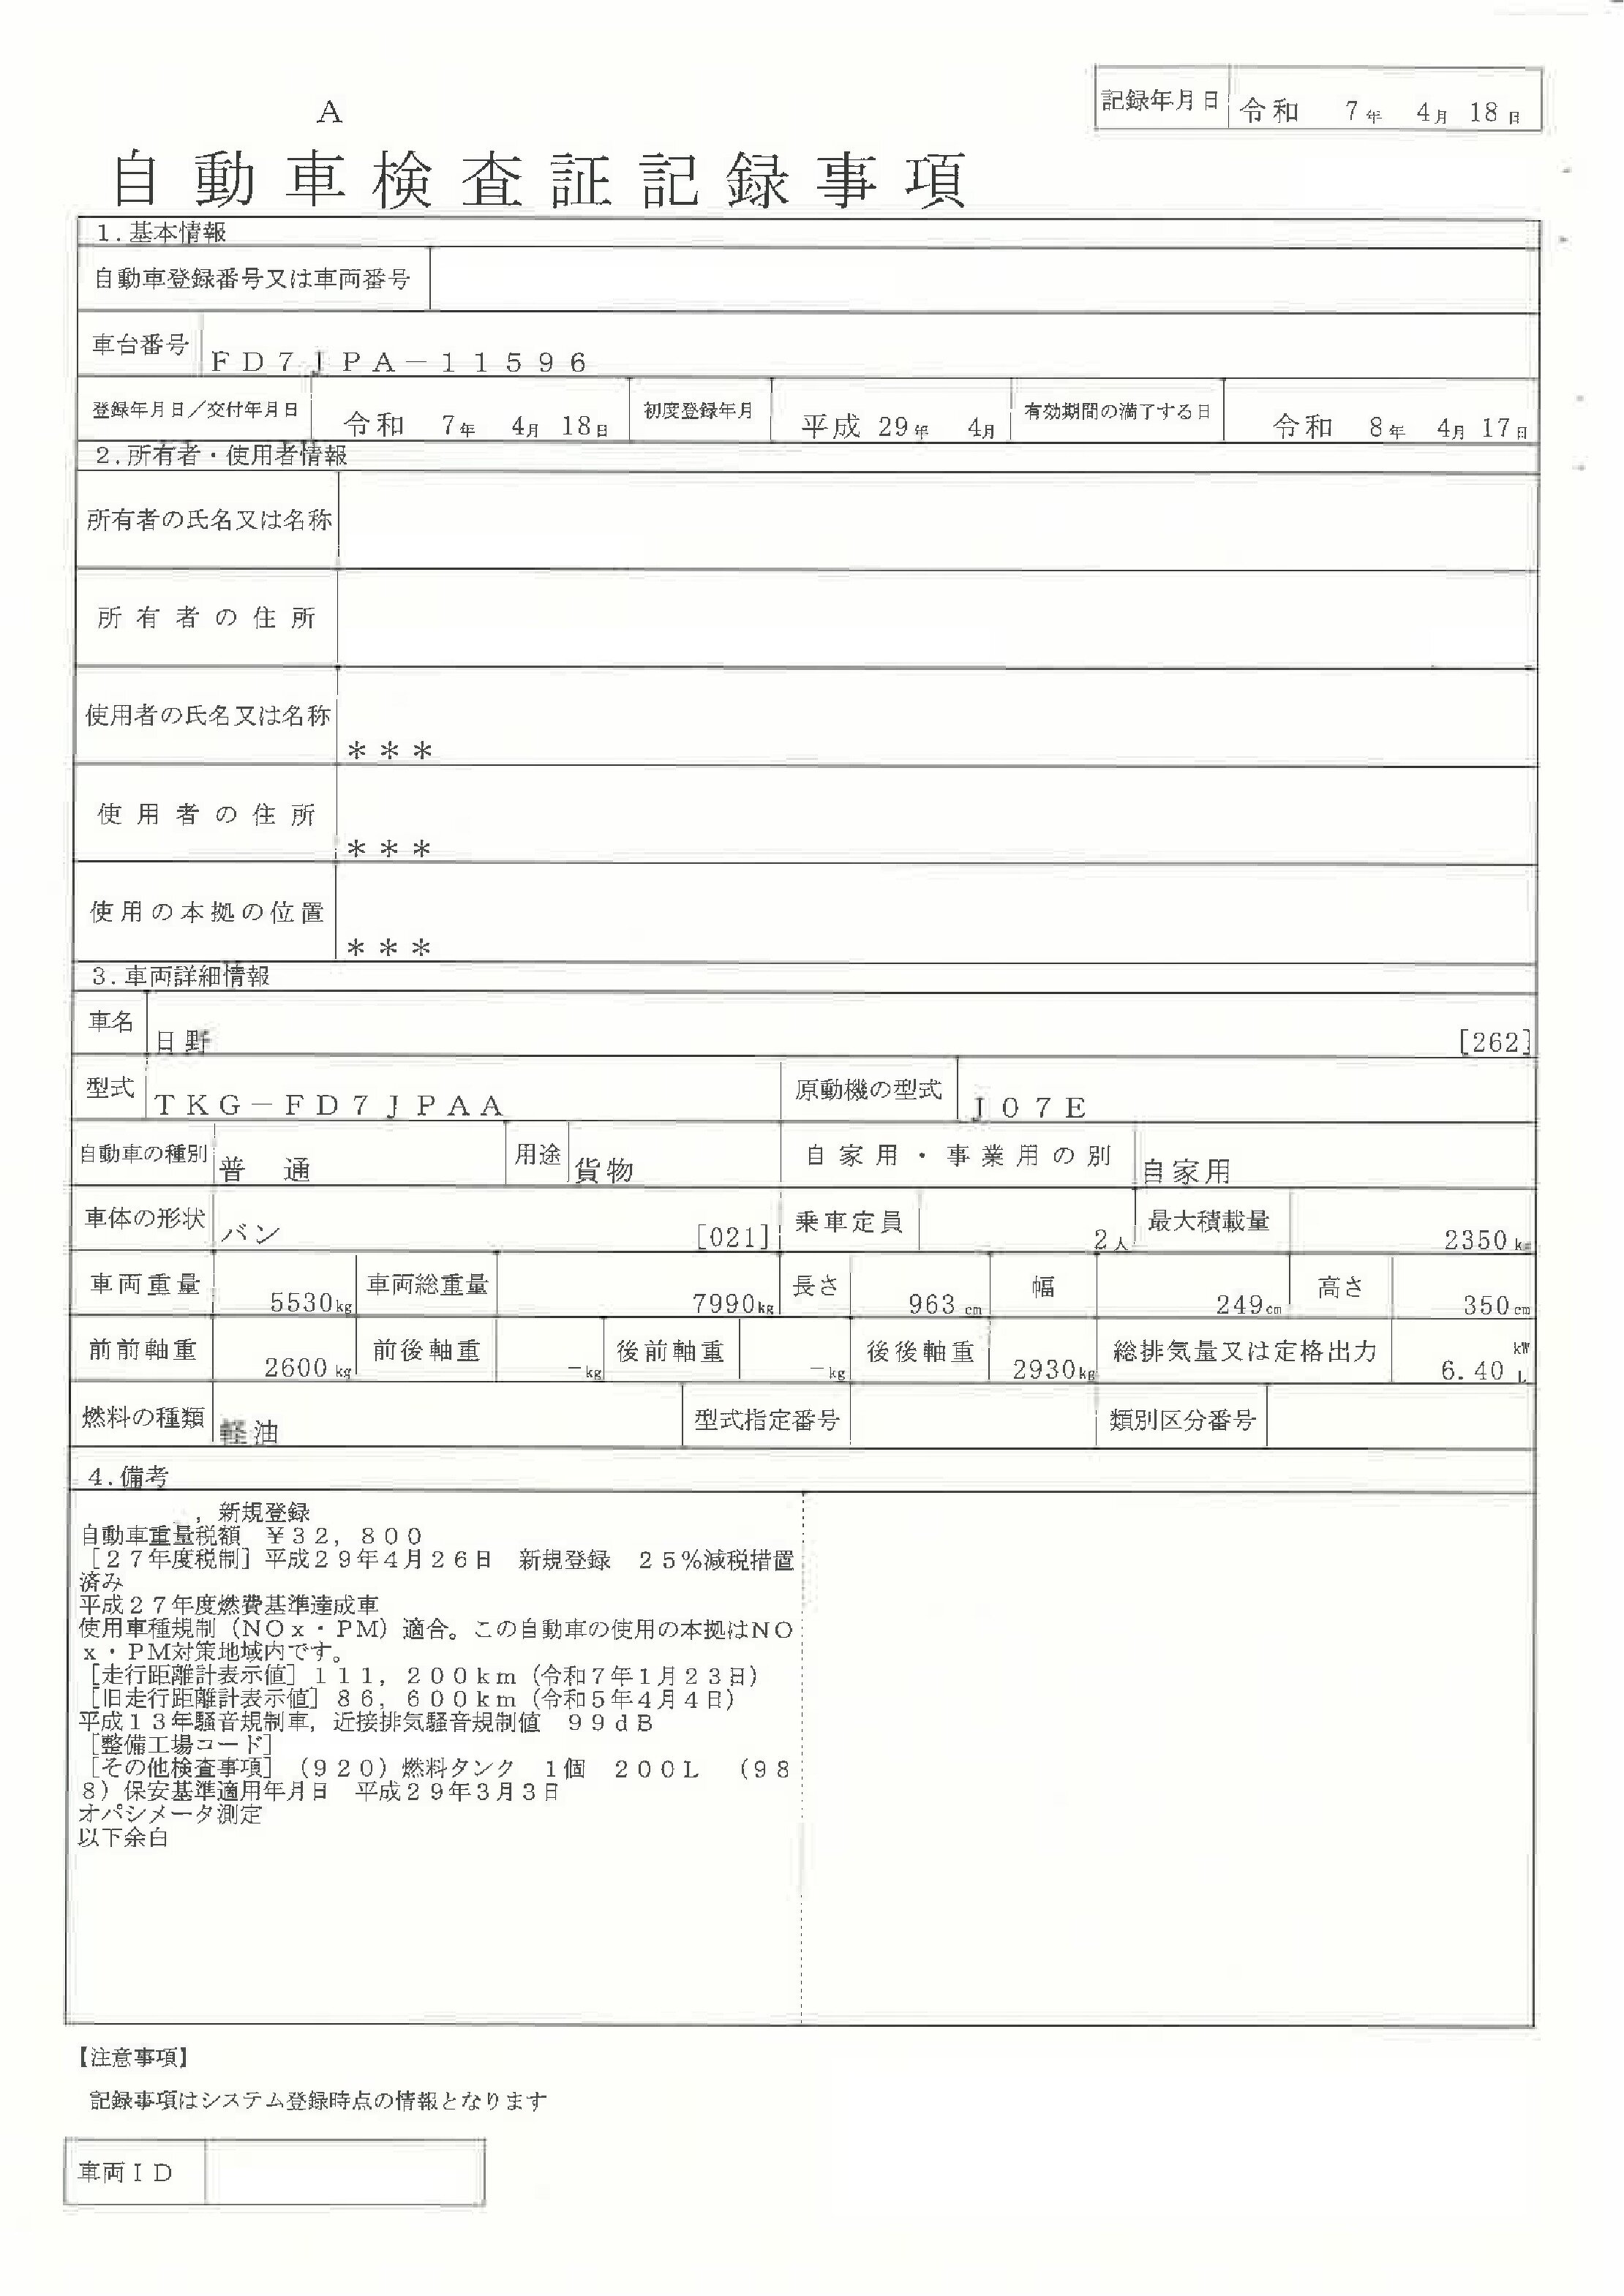 記録年月日 令和 7年 4月 18日
A
自動車検査証記録事項
1.基本情報
自動車登録番号又は車両番号
車台番号 FD7JPA－11596
登録年月日／交付年月日 令和 7年 4月 18日 初度登録年月 平成 29年 4月 有効期間の満了する日 令和 8年 4月 17日
2.所有者・使用者情報
所有者の氏名又は名称
所有者の住所
使用者の氏名又は名称 ＊＊＊
使用者の住所 ＊＊＊
使用の本拠の位置 ＊＊＊
3.車両詳細情報
車名 日野 [262]
型式 TKG－FD7JPAA 原動機の型式 J07E
自動車の種別 普通 用途 貨物 自家用・事業用の別 自家用
車体の形状 バン [021] 乗車定員 2人 最大積載量 2350kg
車両重量 5530kg 車両総重量 7990kg 長さ 963cm 幅 249cm 高さ 350cm
前前軸重 2600kg 前後軸重 －kg 後前軸重 －kg 後後軸重 2930kg 総排気量又は定格出力 kW 6.40 L
燃料の種類 軽油 型式指定番号 類別区分番号
4.備考
，新規登録
自動車重量税額 ￥32，800
［27年度税制］平成29年4月26日 新規登録 25％減税措置
済み
平成27年度燃費基準達成車
使用車種規制（NOx・PM）適合。この自動車の使用の本拠はNO
x・PM対策地域内です。
［走行距離計表示値］111，200km（令和7年1月23日）
［旧走行距離計表示値］86，600km（令和5年4月4日）
平成13年騒音規制車，近接排気騒音規制値 99dB
［整備工場コード］
［その他検査事項］（920）燃料タンク 1個 200L （98
8）保安基準適用年月日 平成29年3月3日
オパシメータ測定
以下余白
【注意事項】
記録事項はシステム登録時点の情報となります
車両ID